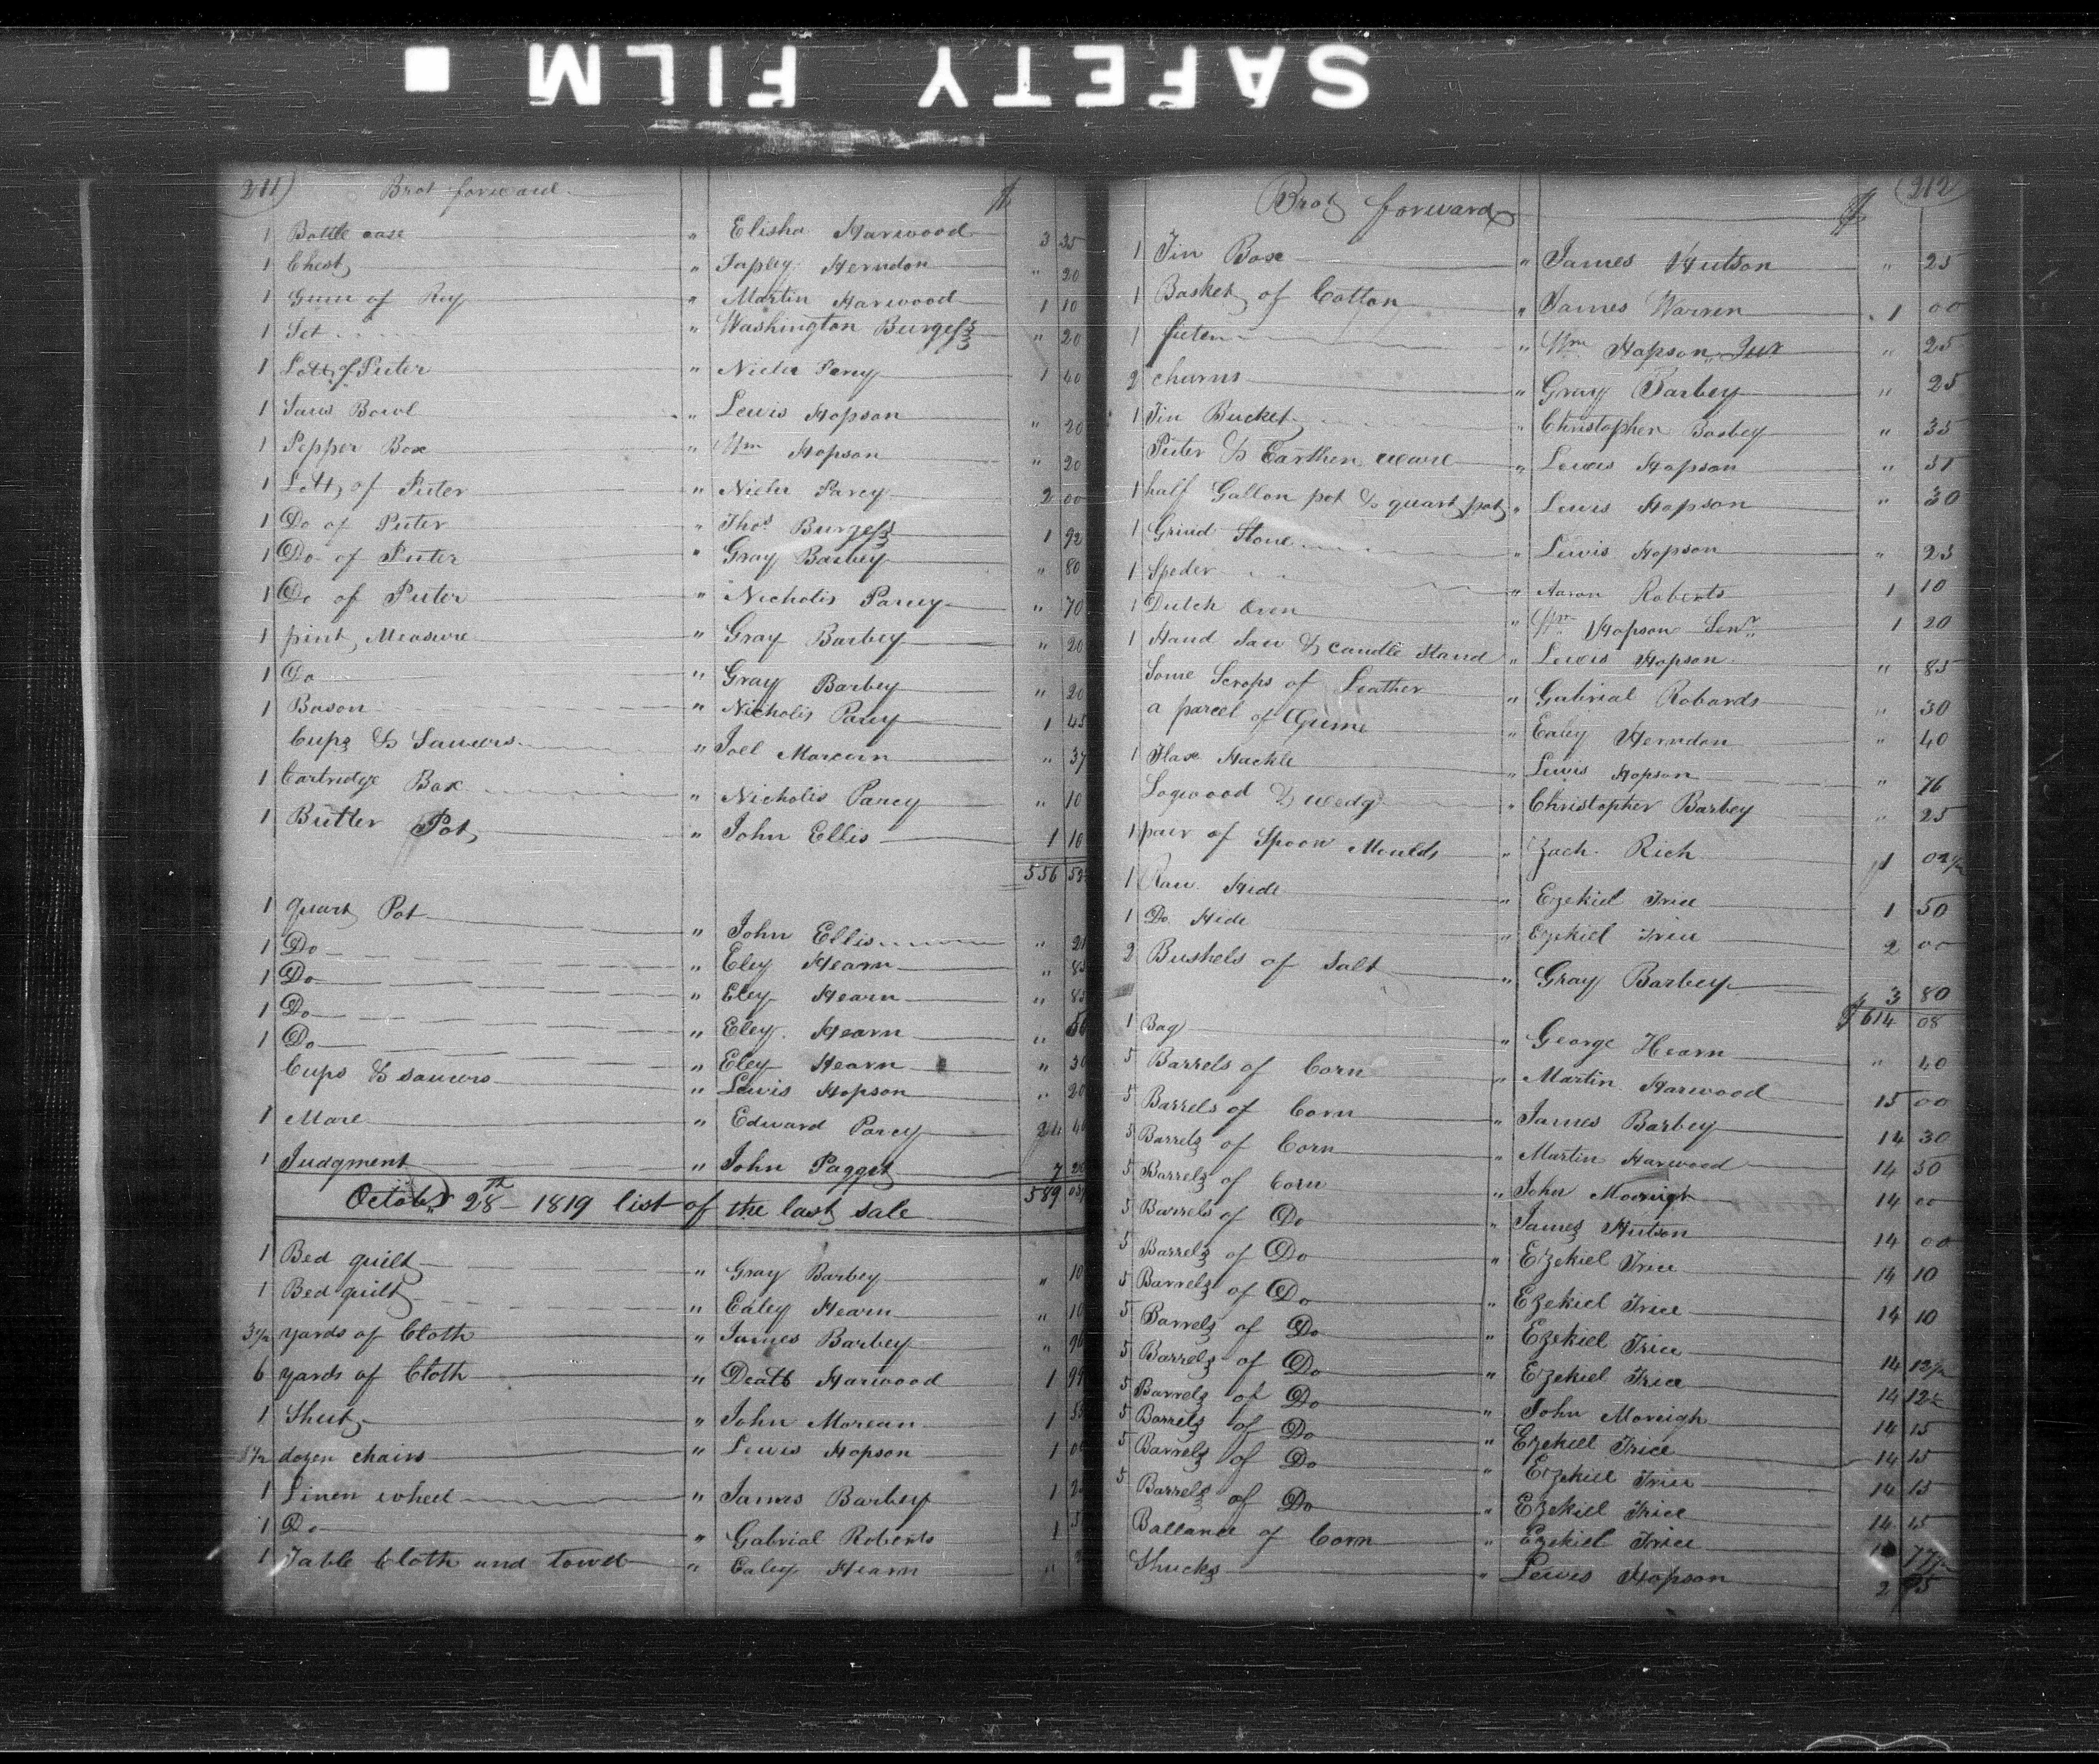 SAFETY FILM
211) Brot forward $
1 Bottle case " Elisha Harwood 3 35
1 Chest " Tapley Herndon " 20
1 Gum of Rey " Martin Harwood 1 10
1 Set " Washington Burgess " 20
1 Lott of Puter " Parcy 1 40
1 Bowl " Lewis Hopson " 20
1 Pepper Box " Wm Hopson " 20
1 Lott of Puter " Parcy 2 00
1 Do of Puter " Thos Burgess 1 92
1 Do of Puter " Gray Barbey " 80
1 Do of Puter " Nicholis Parcy " 70
1 pint Measure " Gray Barbey " 20
1 Do " Gray Barbey " 20
1 Bason " Nicholis Parcy 1 45
Cups & Saucers " Joel Morcun " 37
1 Cartridge Box " Nicholis Parcy " 10
1 Butter Pot " John Ellis 1 10
556
1 quart Pot " John Ellis "
1 Do " Eley Hearn "
1 Do " Eley Hearn "
1 Do " Eley Hearn "
1 Do " Eley Hearn " 30
Cups & saucers " Lewis Hopson " 20
1 Mare " Edward Parcy 24
1 Judgment " John Pagget 7
October 28th 1819 list of the last sale 589
1 Bed quilt " Gray Barbey " 10
1 Bed quilt " Ealey Hearn " 10
3 1/2 yards of Cloth " James Barbey "
6 yards of Cloth " Harwood 1
1 Shut " John Morean 1
dozen chairs " Lewis Hopson 1
1 Linen wheel " James Barbey 1
1 Do " Gabrial Roberts 1
1 Table Cloth and towel " Ealey Hearn "
Brot forward $ 212
1 Tin Box " James Hutson " 25
1 Basket of Cotton " James Warren 1 00
1 " Wm Hopson Jur " 25
2 churns " Gray Barbey " 25
1 Tin Bucket " Christopher Barbey " 35
Puter & Earthen ware " Lewis Hopson " 51
1 half Gallon pot & quart pot " Lewis Hopson " 30
1 Grind Stone " Lewis Hopson " 25
1 Speder " Aaron Roberts 1 10
1 Dutch Oven " Wm Hopson Senr 1 20
1 Hand Saw & candle stand " Lewis Hopson " 85
Some Scrops of Leather " Gabrial Robards " 30
a parcel of Gums " Ealey Herndon " 40
1 Flax Hackle " Lewis Hopson " 76
Logwood & wedg " Christopher Barbey " 25
1 pair of Spoon Moulds " Zach Rich 1
1 Raw Hide " Ezekiel Trice 1 50
1 Do Hide " Ezekiel Trice 2 00
2 Bushels of Salt " Gray Barbey 3 80
$ 614 08
1 Bag " George Hearn " 40
5 Barrels of Corn " Martin Harwood 15 00
5 Barrels of Corn " James Barbey 14 30
5 Barrels of Corn " Martin Harwood 14 50
5 Barrels of Corn " John 14 00
5 Barrels of Do " James Hutson 14 00
5 Barrels of Do " Ezekiel Trice 14 10
5 Barrels of Do " Ezekiel Trice 14 10
5 Barrels of Do " Ezekiel Trice 14 12 1/2
5 Barrels of Do " Ezekiel Trice 14 12 1/2
5 Barrels of Do " John Moreigh 14 15
5 Barrels of Do " Ezekiel Trice 14 15
5 Barrels of Do " Ezekiel Trice 14 15
5 Barrels of Do " Ezekiel Trice 14 15
Ballance of Corn " Ezekiel Trice
Shucks " Lewis Hopson 2